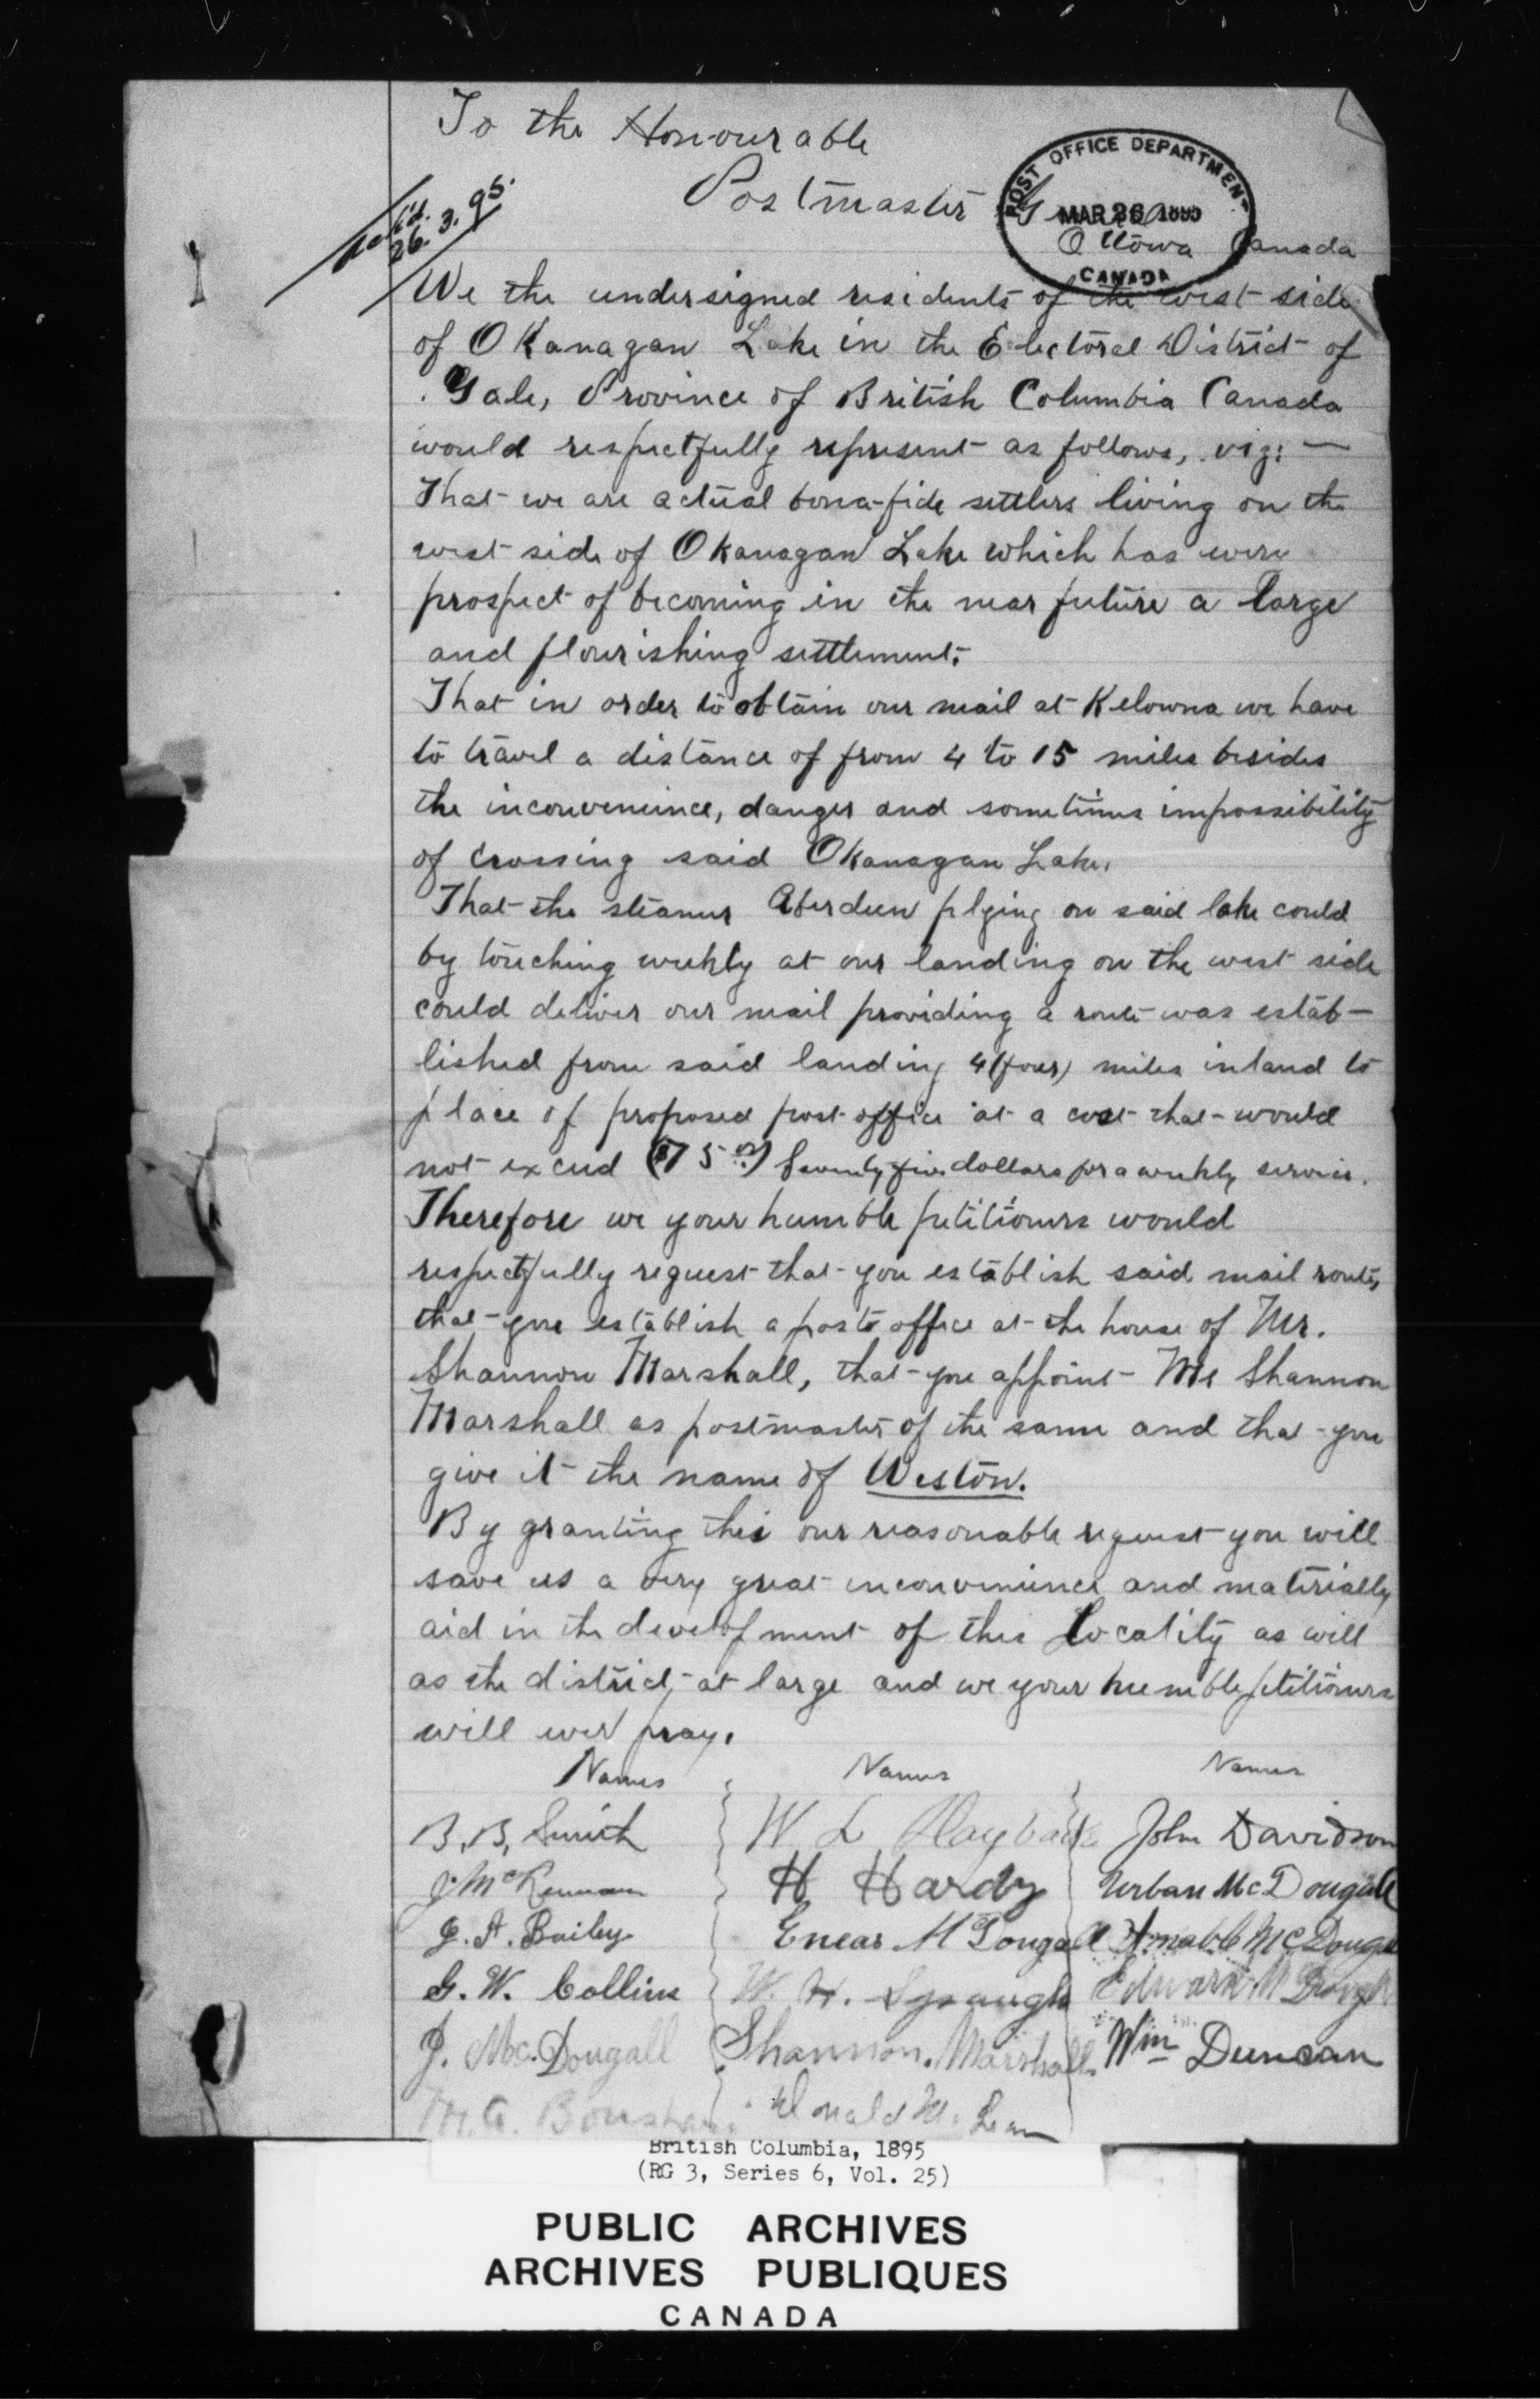 To the Honourable
Postmaster General
Ottowa Canada
POST OFFICE DEPARTMENT
MAR 26 1895
CANADA
26.3.95.
We the undersigned residents of the west side
of OKanagan Lake in the Electoral District of
Yale, Province of British Columbia Canada
would respectfully represent as follows, viz: —
That we are actual bona-fide settlers living on the
west side of Okanagan Lake which has every
prospect of becoming in the near future a large
and flourishing settlement.
That in order to obtain our mail at Kelowna we have
to travel a distance of from 4 to 15 miles besides
the inconvenience, danger and sometimes impossibility
of crossing said Okanagan Lake.
That the steamer Aberdeen plying on said lake could
by touching weekly at our landing on the west side
could deliver our mail providing a route was estab-
lished from said landing 4 (four) miles inland to
place of proposed post office at a cost that would
not exceed ($75.00) Seventy five dollars for a weekly service.
Therefore we your humble petitioners would
respectfully request that you establish said mail route,
that you establish a post office at the house of Mr.
Shannon Marshall, that you appoint Mr Shannon
Marshall as postmaster of the same and that you
give it the name of Weston.
By granting this our reasonable request you will
save us a very great inconvenience and materially
aid in the development of this Locality as well
as the district at large and we your humble petitioners
will ever pray.
Names Names Names
B. B. Smith W L John Davidson
J McKinnon H Hardy Urban McDougall
J. A. Bailey Eneas McDougall Amable McDougall
G. W. Collins W. H. Edward McDougall
J. McDougall Shannon Marshall Wm Duncan
M. G. Donald McLean
British Columbia, 1895
(RG 3, Series 6, Vol. 25)
PUBLIC ARCHIVES
ARCHIVES PUBLIQUES
CANADA